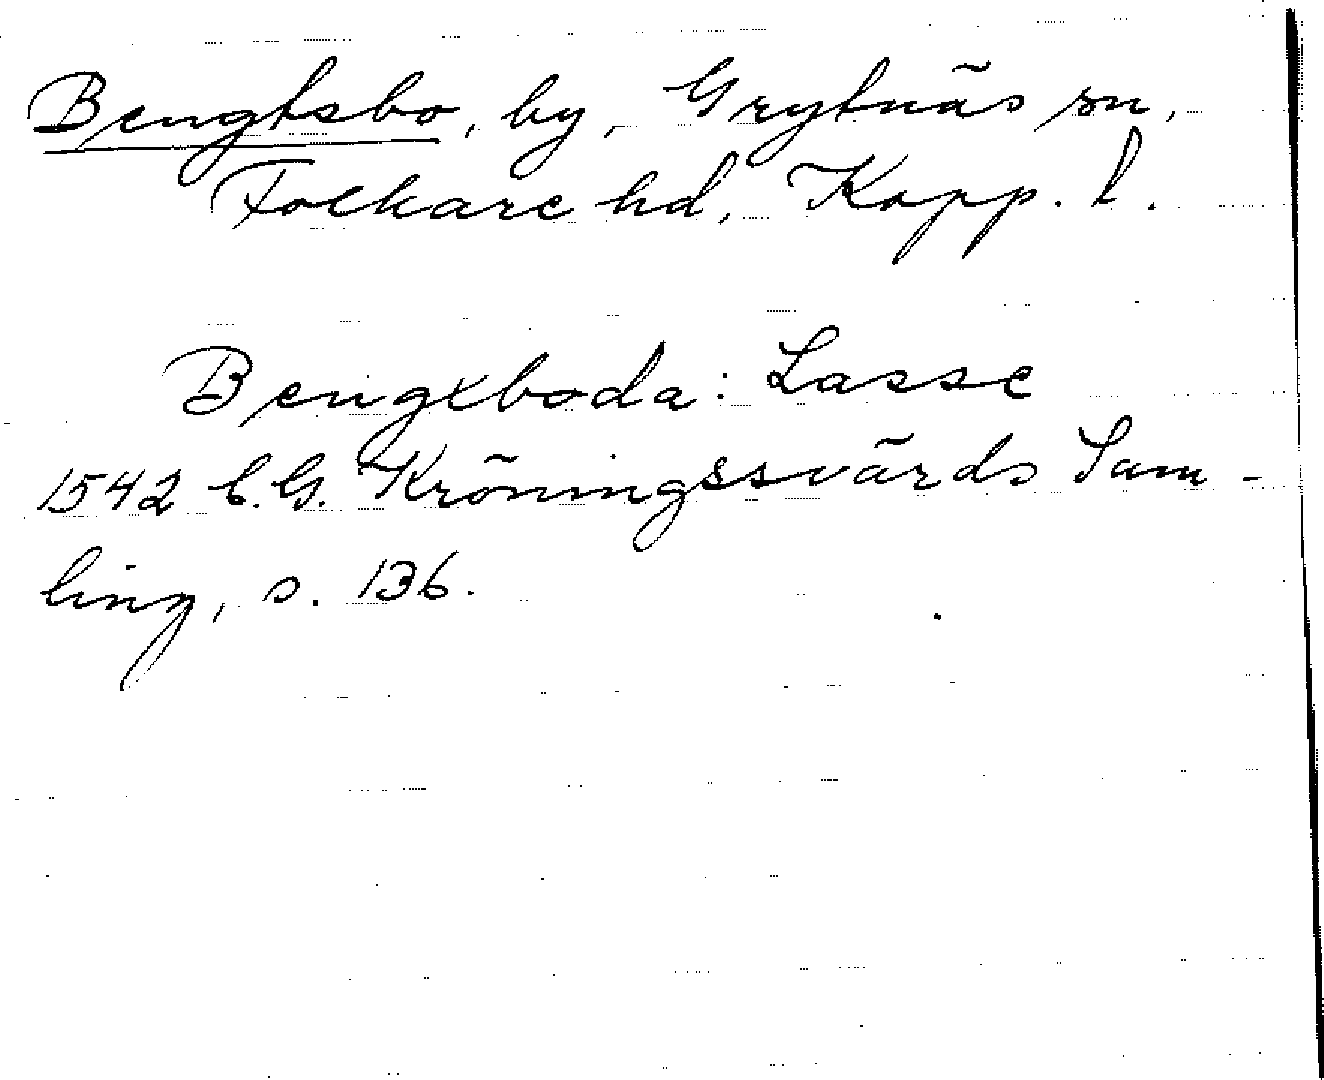 Bengtsbo, by, Grytnäs sn,
Folkare hd, Kopp. l.
Bengxboda: Lasse
1542 C.G. Kröningssvärds Sam-
ling, s. 136.